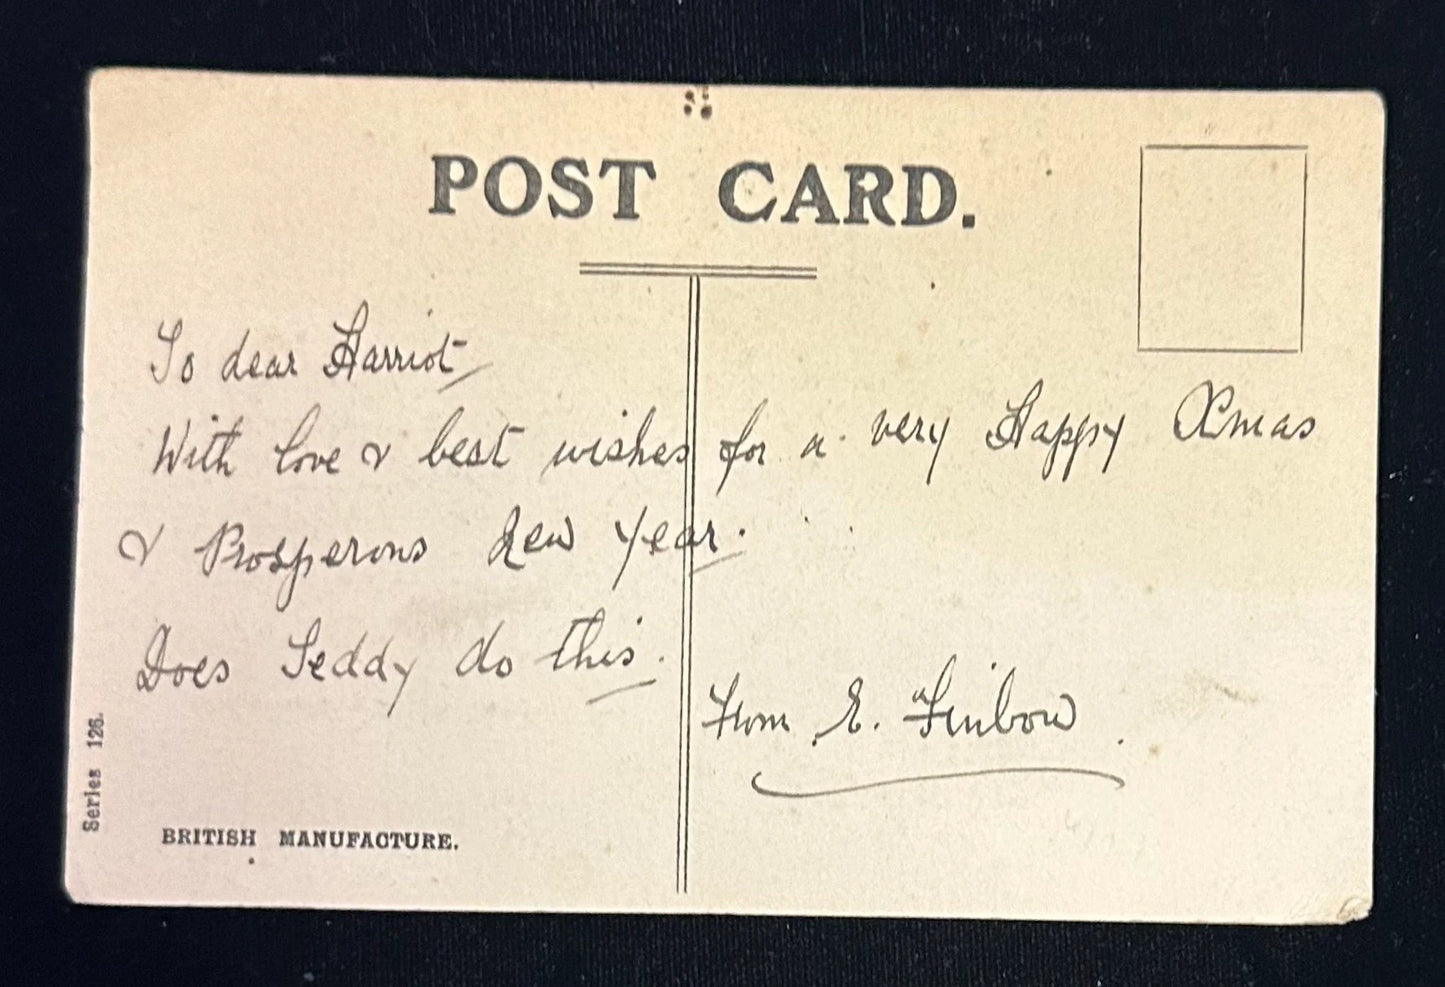 POST CARD.
To dear Harriot
With love & best wishes for a very Happy Xmas
& Prosperous New Year.
Does Teddy do this.
From E. Finbow.
Series 126.
BRITISH MANUFACTURE.